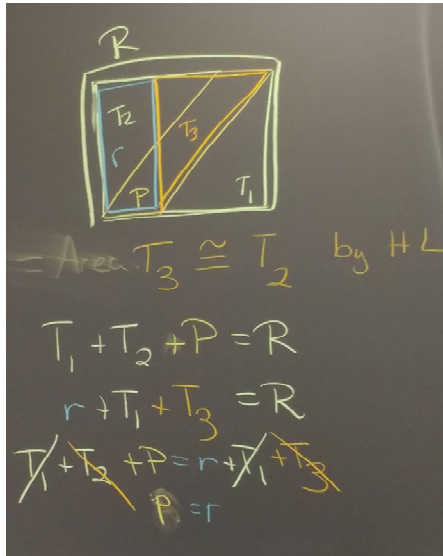 R
T₂
r
T₃
P
T₁
= Area T₃ ≅ T₂ by HL
T₁ + T₂ + P = R
r + T₁ + T₃ = R
T₁ + T₂ + P = r + T₁ + T₃
P = r